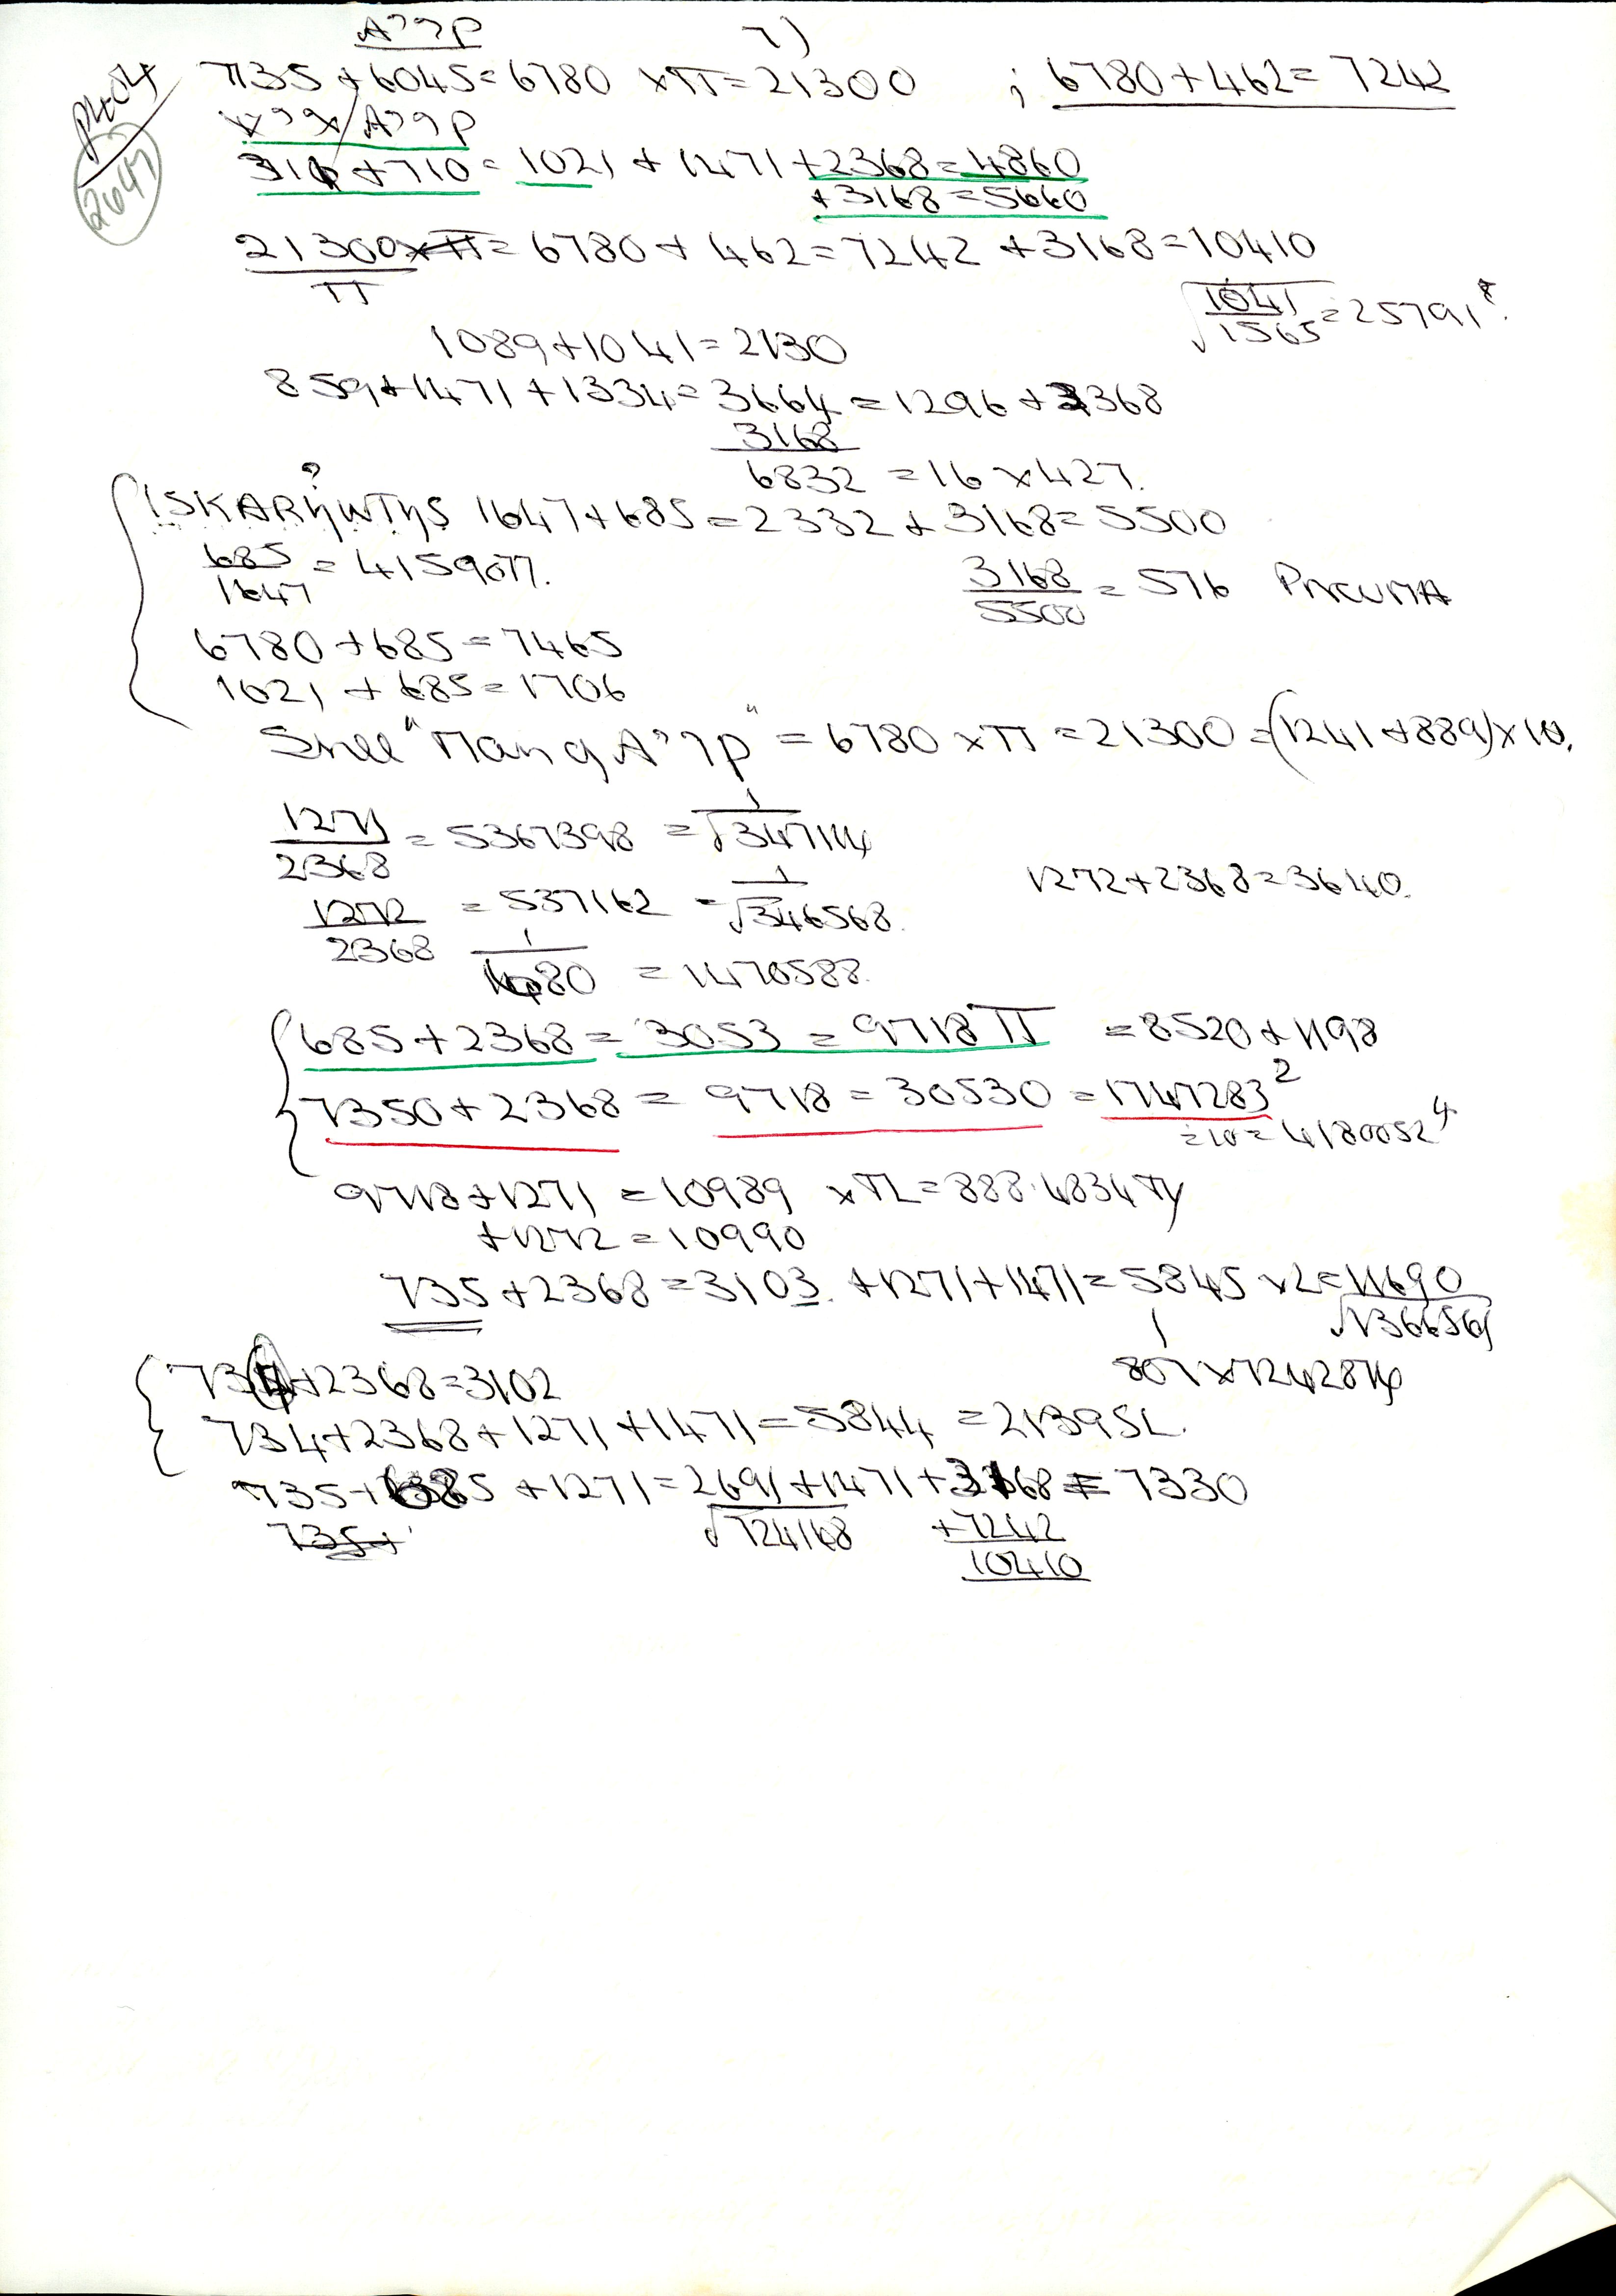 7)
735 + 6045 = 6780 × π = 21300 ; 6780 + 462 = 7242
2647
311 + 710 = 1021 + 1471 + 2368 = 4860
+ 3168 = 5660
21300 / π = 6780 + 462 = 7242 + 3168 = 10410
√1041/1565 = 25791⁸.
1089 + 1041 = 2130
859 + 1471 + 1334 = 3664 = 1296 + 2368
3168
6832 = 16 × 427.
ISKARηWTηS 1647 + 685 = 2332 + 3168 = 5500
685/1647 = 4159077.
3168/5500 = 576 PNEUMA
6780 + 685 = 7465
1021 + 685 = 1706
= 6780 × π = 21300 = (1241 + 889) × 10.
1271/2368 = 5367398 = 1/√347114
1272 + 2368 = 3640.
1272/2368 = 537162 = 1/√346568.
1/680 = 1470588.
685 + 2368 = 3053 = 9718 π = 8520 + 1198
7350 + 2368 = 9718 = 30530 = 1747283²
= 10 = 4180052⁴
9718 + 1271 = 10989 × π = 888.4834
+ 1272 = 10990
735 + 2368 = 3103. + 1271 + 1471 = 5845 × 2 = 11690
√136656
734 + 2368 = 3102
734 + 2368 + 1271 + 1471 = 5844 = 21395L.
735 + 685 + 1271 = 2691 + 1471 + 3168 = 7330
√724168 + 7242
10410